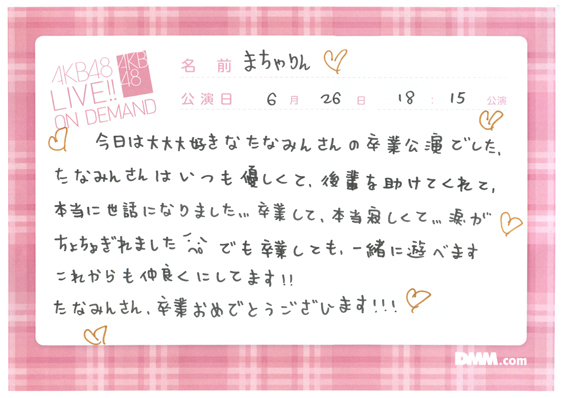 AKB48
LIVE!!
ON DEMAND
AKB
48
名前 まちゃりん
公演日 6月 26日 18:15 公演
今日は大大大好きなたなみんさんの卒業公演でした、
たなみんさんはいつも優しくて、後輩を助けてくれて、
本当に世話になりました… 卒業して、本当寂しくて… 涙が
ちょちょぎれました でも卒業しても、一緒に遊べます
これからも仲良くにしてます!!
たなみんさん、卒業おめでとうございます!!!
DMM.com